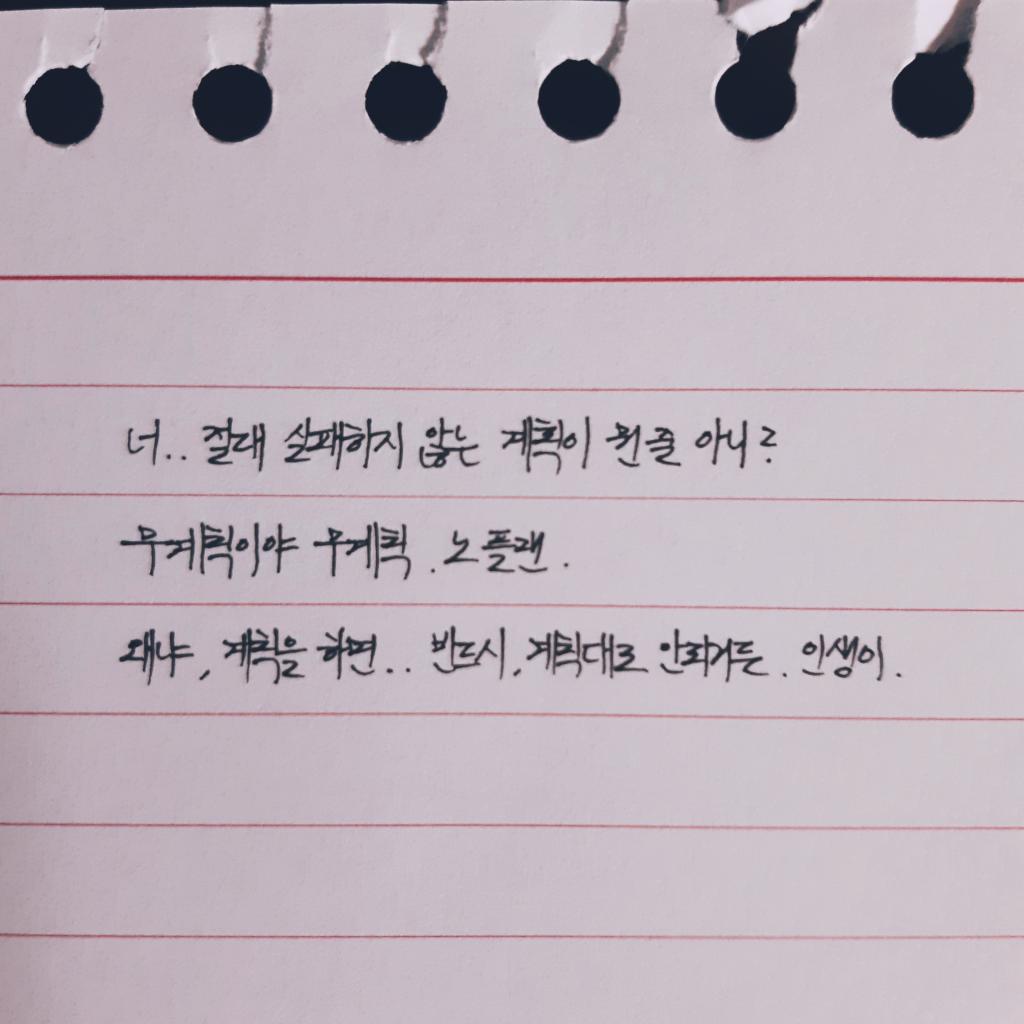 너.. 절대 실패하지 않는 계획이 뭔 줄 아니?
무계획이야 무계획. 노플랜.
왜냐, 계획을 하면.. 반드시, 계획대로 안되거든. 인생이.